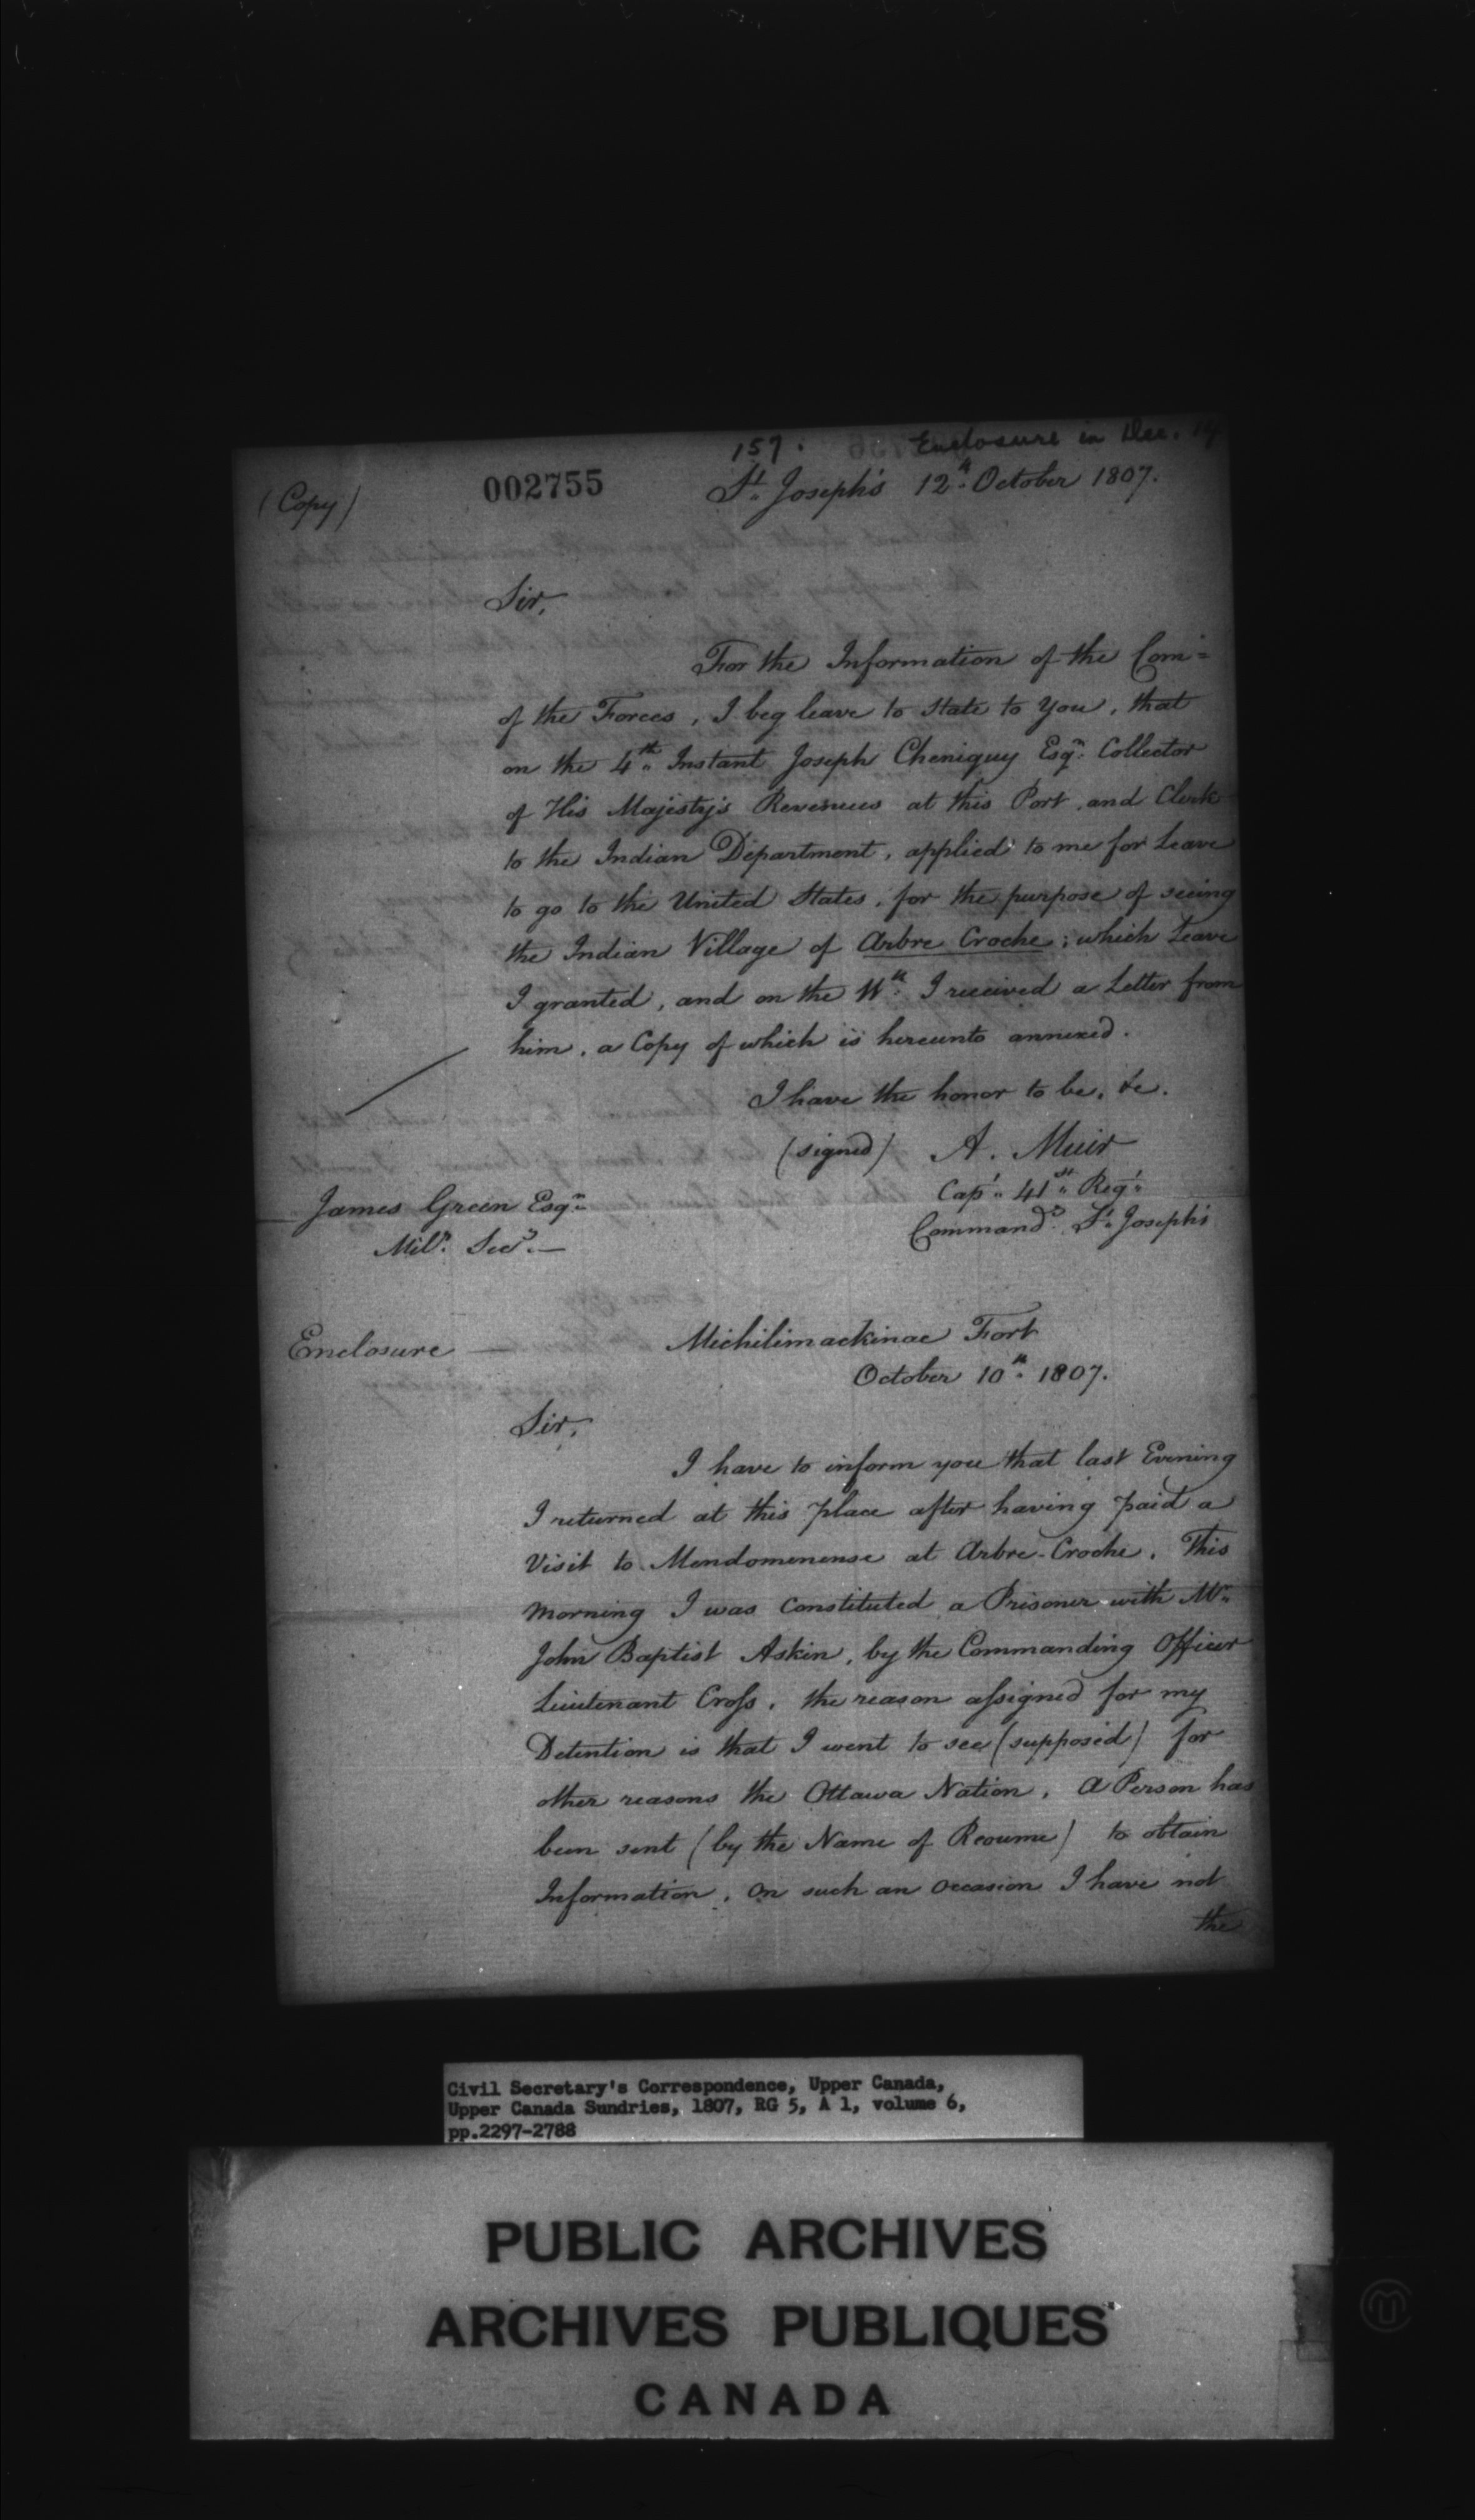 157. Enclosure in Dec. 14
(Copy) 002755 St. Joseph's 12th October 1807.
Sir,
For the Information of the Com=
of the Forces, I beg leave to state to You, that
on the 4th Instant Joseph Cheniquy Esqr. Collector
of His Majesty's Revenues at this Port, and Clerk
to the Indian Department, applied to me for Leave
to go to the United States, for the purpose of seeing
the Indian Village of Arbre Croche; which Leave
I granted, and on the 11th. I received a Letter from
him, a Copy of which is hereunto annexed.
I have the honor to be, &c.
(signed) A. Muir
Capt. 41st. Regt.
Commandg. St. Joseph's
James Green Esqr.
Mily. Secy. —
Enclosure — Michilimackinac Fort
October 10th. 1807.
Sir,
I have to inform you that last Evening
I returned at this place after having paid a
Visit to Mendomenense at Arbre-Croche. This
morning I was constituted a Prisoner with Mr.
John Baptist Askin, by the Commanding Officer
Lieutenant Cross, the reason assigned for my
Detention is that I went to see (supposed) for
other reasons the Ottawa Nation. A Person has
been sent (by the Name of Reaume) to obtain
Information. On such an occasion I have not
the
Civil Secretary's Correspondence, Upper Canada,
Upper Canada Sundries, 1807, RG 5, A 1, volume 6,
pp.2297-2788
PUBLIC ARCHIVES
ARCHIVES PUBLIQUES
CANADA